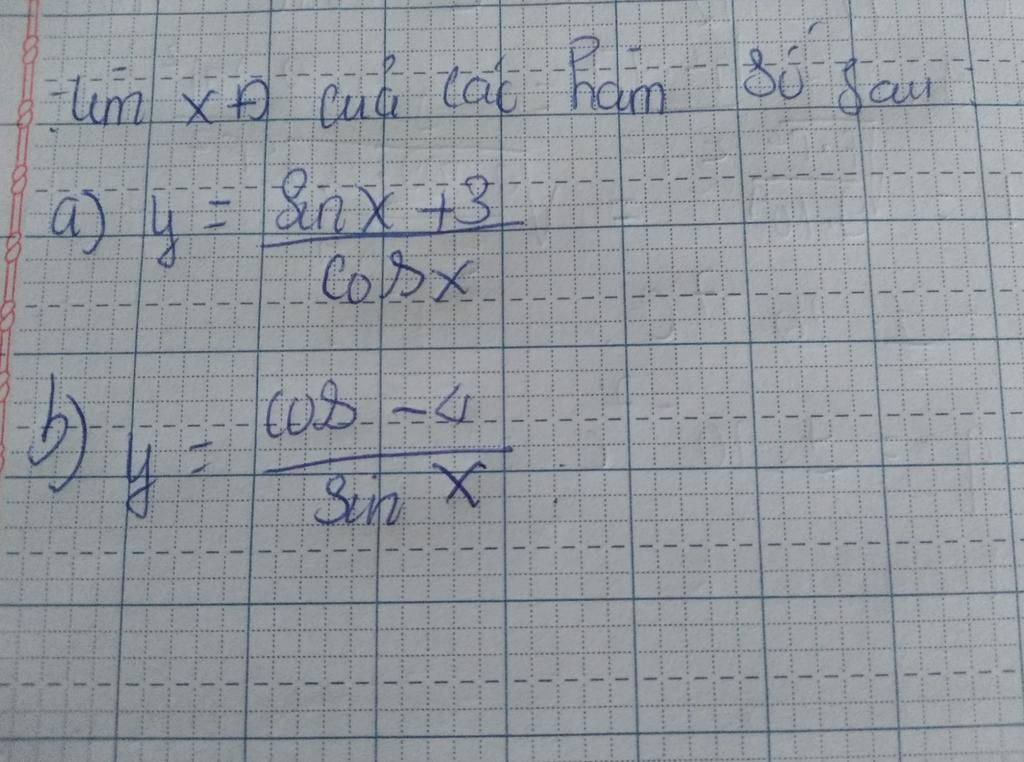 Tìm x+D của các hàm số sau:
a) y = sin x + 3 / cos x
b) y = cos - 4 / sin x